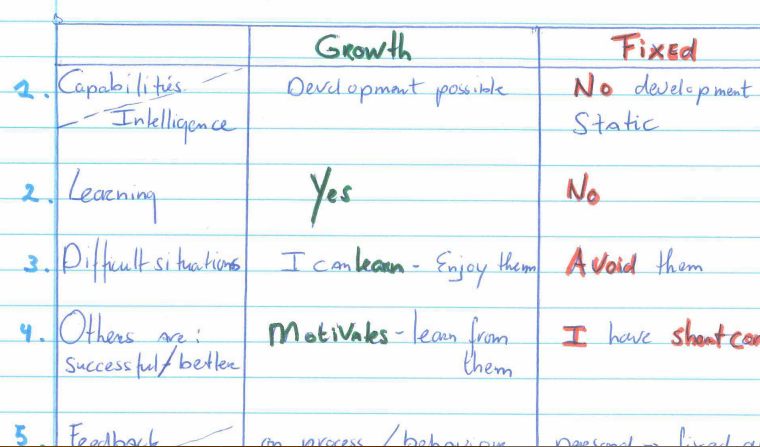 Growth Fixed
1. Capabilities Development possible No development
Intelligence Static
2. Learning Yes No
3. Difficult situations I can learn - Enjoy them Avoid them
4. Others are: Motivates - learn from I have
successful/better them
5. Feedback on process / behaviour